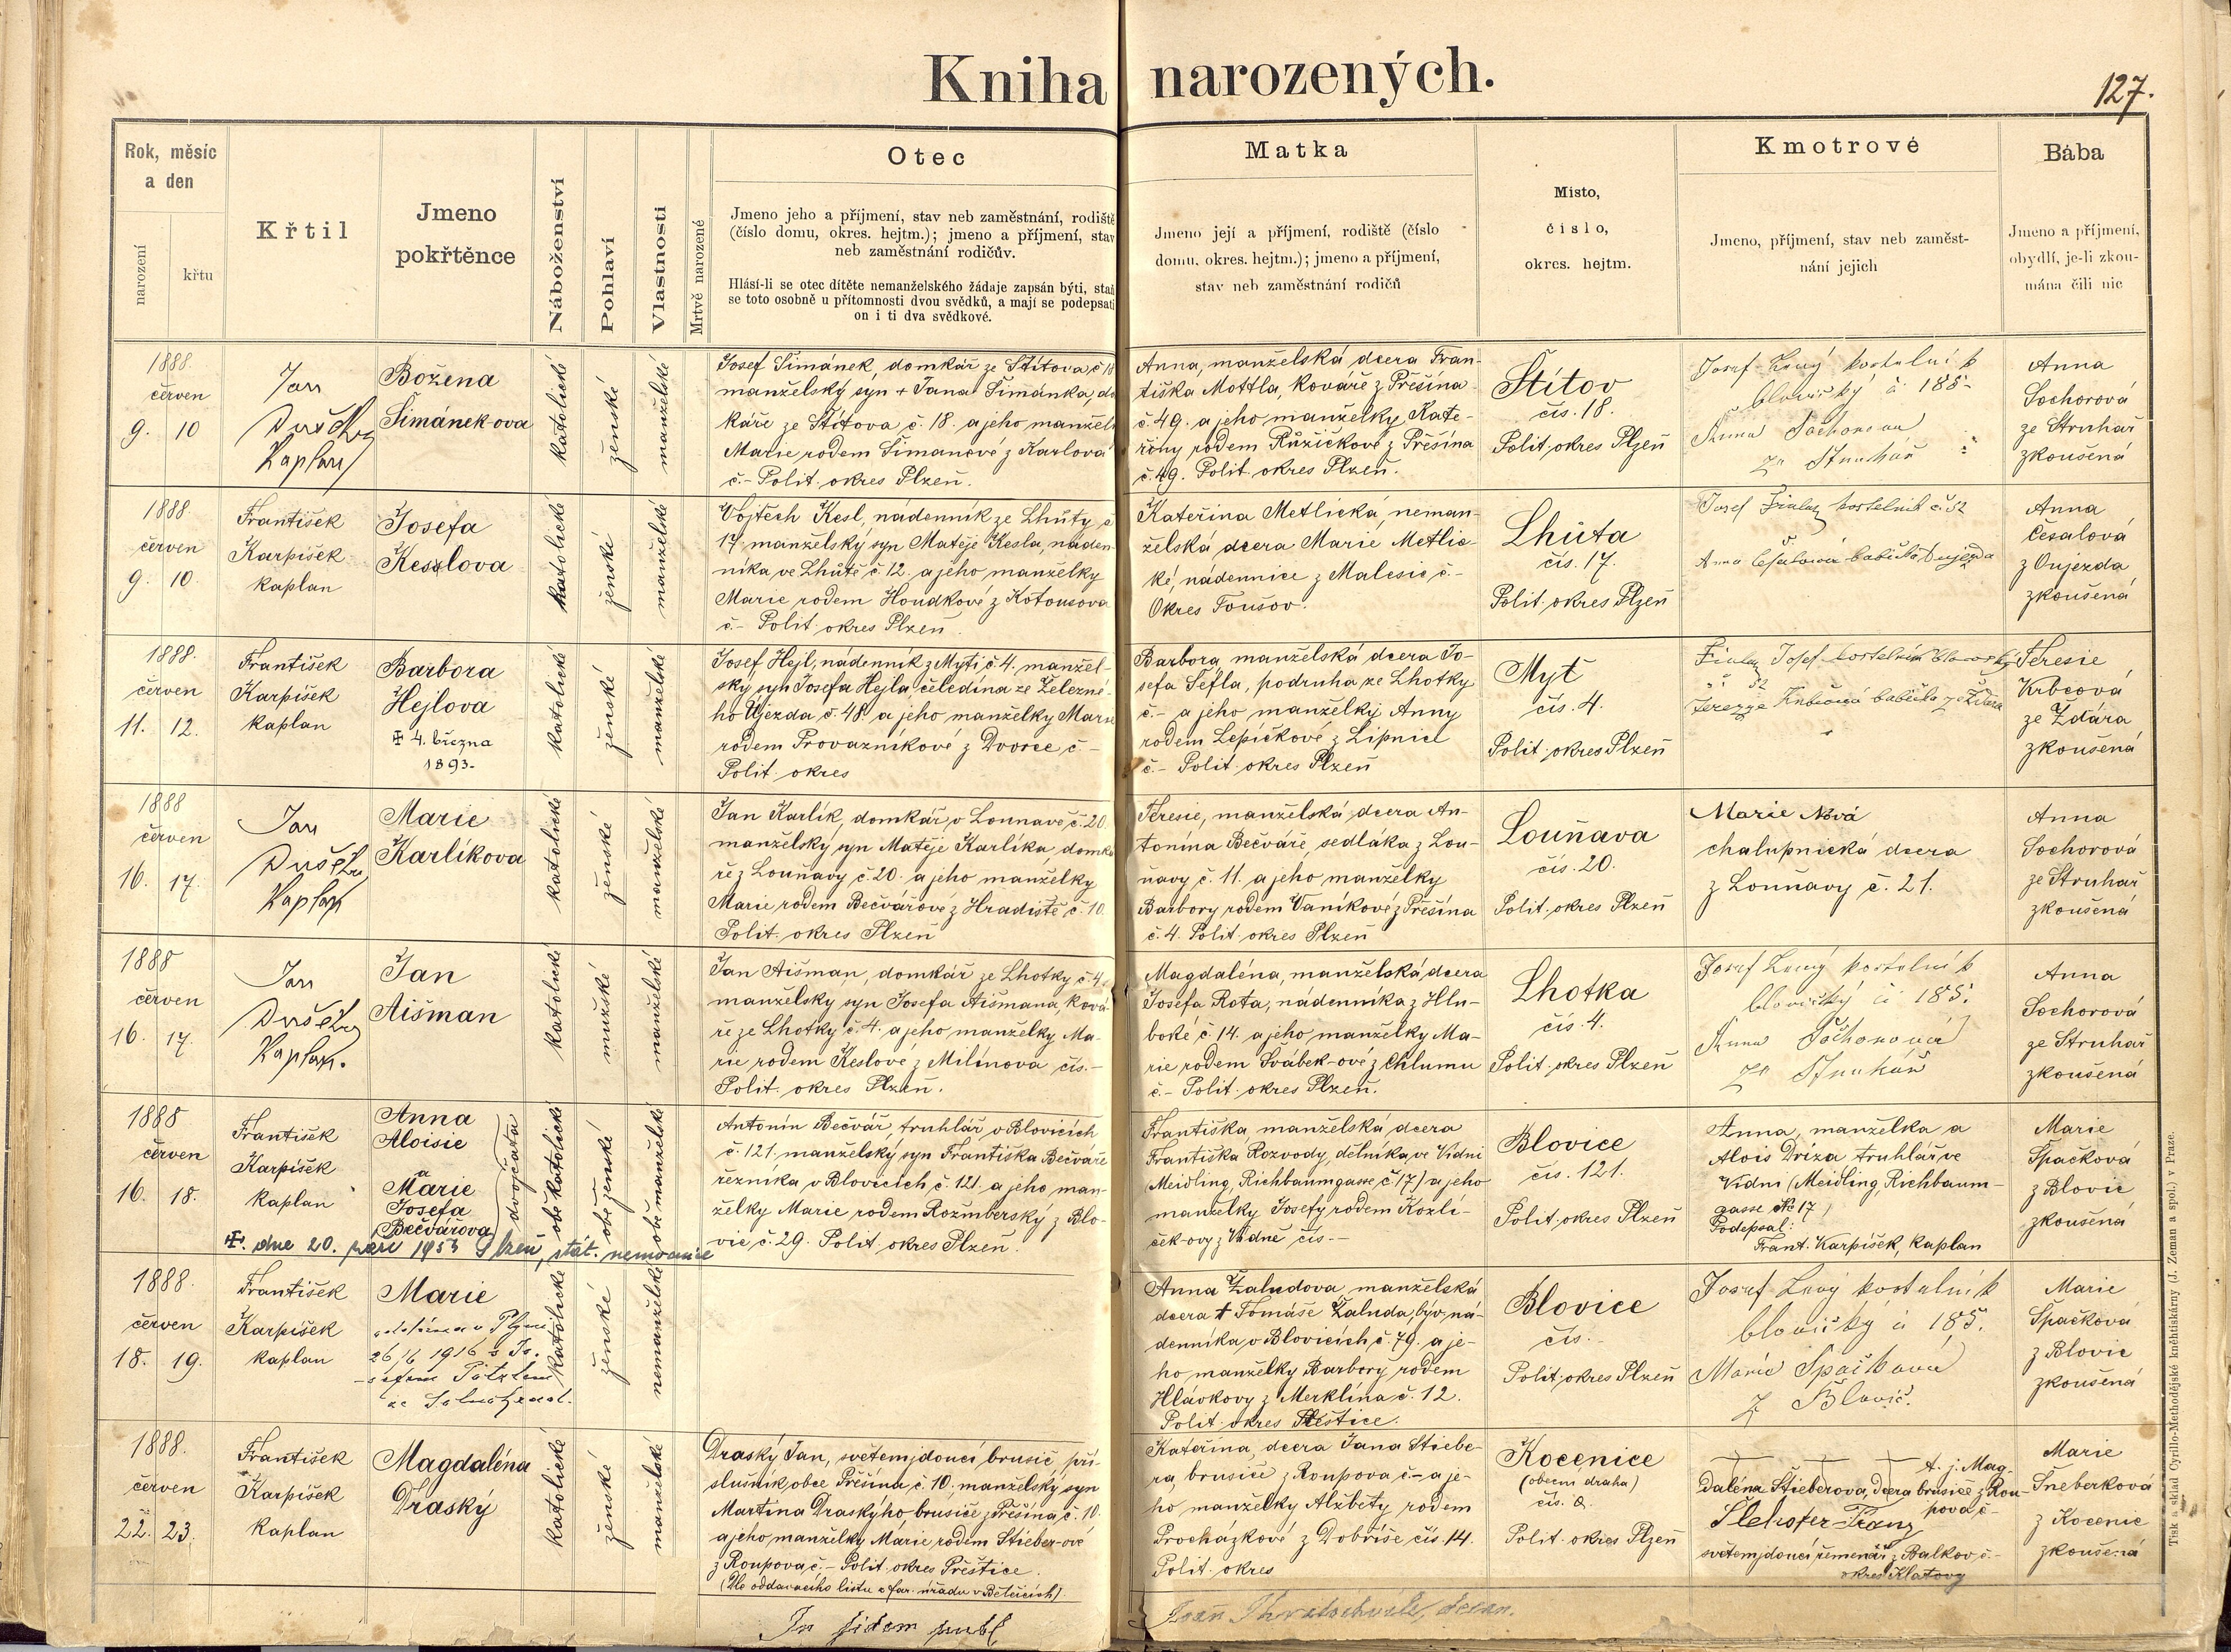 Kniha narozených.
127.
Rok, měsíc
a den
narození
křtu
Křtil
Jmeno
pokřtěnce
Náboženství
Pohlaví
Vlastnosti
Mrtvě narozené
Otec
Jmeno jeho a příjmení, stav neb zaměstnání, rodiště
(číslo domu, okres. hejtm.); jmeno a příjmení, stav
neb zaměstnání rodičův.
Hlásí-li se otec dítěte nemanželského žádaje zapsán býti, staň
se toto osobně u přítomnosti dvou svědků, a mají se podepsati
on i ti dva svědkové.
Matka
Jmeno její a příjmení, rodiště (číslo
domu, okres. hejtm.); jmeno a příjmení,
stav neb zaměstnání rodičů
Místo,
číslo,
okres. hejtm.
Kmotrové
Jmeno, příjmení, stav neb zaměst-
nání jejich
Bába
Jmeno a příjmení,
obydlí, je-li zkou-
mána čili nic
1888.
červen
9. 10
Jan
Dušek
Kaplan
Božena
Šimánek-ova
katolické
ženské
manželské
Josef Šimánek, domkář ze Štítova č 18
manželský syn + Jana Šimánka, do
káře ze Štítova č. 18. a jeho manžel
Marie rodem Šimanové z Karlova
č.- Polit. okres Plzeň.
Anna, manželská dcera Fran-
tiška Mottla, kováře z Přešína
č. 49. a jeho manželky Kate-
řiny rodem Růžičkové z Přešína
č. 49. Polit. okres Plzeň.
Štítov
čís. 18.
Polit. okres Plzeň
Josef Levý kostelník
blovický č. 185
Anna Sochorova
ze Struhař
Anna
Sochorová
ze Struhař
zkoušená
1888.
červen
9. 10.
František
Karpíšek
kaplan
Josefa
Keslova
katolické
ženské
manželské
Vojtěch Kesl, nádenník ze Lhůty č
17 manželský syn Matěje Kesla, náden-
níka ve Lhůtě č. 12. a jeho manželky
Marie rodem Houdkové z Kotousova
č.- Polit. okres Plzeň.
Kateřina Metlická, neman-
želská dcera Marie Metlic-
ké, nádennice z Malesic č.-
Okres Toušov.
Lhůta
čís. 17.
Polit. okres Plzeň
Josef Fiala kostelník č. 52
Anna Česalová babička z Oujezda
Anna
Česalová
z Oujezda
zkoušená
1888.
červen
11. 12.
František
Karpíšek
kaplan
Barbora
Hejlova
✠ 4. března
1893.
katolické
ženské
manželské
Josef Hejl, nádenník z Mytí č. 4. manžel-
ský syn Josefa Hejla, čeledína ze Železné-
ho Újezda č. 48. a jeho manželky Marie
rodem Provazníkové z Dvorce č-
Polit. okres
Barbora, manželská dcera Jo-
sefa Šefla, podruha ze Lhotky
č.- a jeho manželky Anny
rodem Lepičkové z Lipnice
č.- Polit. okres Plzeň
Myť
čís. 4.
Polit. okres Plzeň
Fiala Josef kostelník blovický
č 52
Terezye Krbcová babička ze Žďára
Teresie
Krbcová
ze Ždára
zkoušená
1888
červen
16. 17.
Jan
Dušek
Kaplan
Marie
Karlíkova
katolické
ženské
manželské
Jan Karlík, domkář v Louňavě č. 20.
manželský syn Matěje Karlíka, domká
ře z Louňavy č. 20. a jeho manželky
Marie rodem Bečvářové z Hradiště č. 10.
Polit. okres Plzeň
Teresie, manželská dcera An-
tonína Bečváře, sedláka z Lou-
ňavy č. 11. a jeho manželky
Barbory rodem Vaníkové z Přešína
č. 4. Polit. okres Plzeň
Louňava
čís. 20
Polit. okres Plzeň
Marie Nová
chalupnická dcera
z Louňavy č. 21.
Anna
Sochorová
ze Struhař
zkoušená
1888
červen
16. 17.
Jan
Dušek
Kaplan.
Jan
Aišman
katolické
mužské
manželské
Jan Aišman, domkář ze Lhotky č. 4.
manželský syn Josefa Aišmana, ková-
ře ze Lhotky č. 4. a jeho manželky Ma-
rie rodem Keslové z Milínova čís.-
Polit. okres Plzeň.
Magdaléna, manželská dcera
Josefa Rota, nádenníka z Hlu-
boké č. 14. a jeho manželky Ma-
rie rodem Švábek-ové z Chlumu
č.- Polit. okres Plzeň.
Lhotka
čís. 4.
Polit. okres Plzeň
Josef Levý kostelník
blovický č 185.
Anna Sochorová
ze Struhař
Anna
Sochorová
ze Struhař
zkoušená
1888
červen
16. 18.
František
Karpíšek
kaplan
Anna
Aloisie
a
Marie
Josefa
Bečvářova
dvojčata
obě katolické
obě ženské
obě manželské
✠. dne 20. září 1953 Plzeň, stát. nemocnice
Antonín Bečvář, truhlář v Blovicích
č. 121. manželský syn Františka Bečváře
řezníka v Blovicích č. 121. a jeho man-
želky Marie rodem Rožmberský z Blo-
vic č. 29. Polit. okres Plzeň.
Františka manželská dcera
Františka Rozvody, dělníka, ve Vídni
(Meidling, Richbaumgasse č. 17) a jeho
manželky Josefy rodem Kozlí-
ček-ovy z Vídně čís.-
Blovice
čís. 121.
Polit. okres Plzeň
Anna, manželka a
Alois Dríza truhlář ve
Vídni (Meidling, Richbaum-
gasse № 17)
Podepsal:
Frant. Karpíšek, kaplan
Marie
Špačková
z Blovic
zkoušená
1888.
červen
18. 19.
František
Karpíšek
kaplan
Marie
v Plzni
26/6 1916 s Jo-
sefem
katolické
ženské
nemanželské
Anna Žaludova, manželská
dcera † Tomáše Žaluda, býv. ná-
denníka v Blovicích č. 79. a je-
ho manželky Barbory rodem
Hlávkovy z Merklína č. 12.
Polit. okres Přeštice.
Blovice
čís.-
Polit. okres Plzeň
Josef Levý kostelník
blovický č 185.
Marie Špačková
z Blovic.
Marie
Špačková
z Blovic
zkoušená
1888.
červen
22. 23.
František
Karpíšek
kaplan
Magdaléna
Draský
katolické
ženské
manželské
Draský Jan, světemjdoucí brusič pří-
slušník obce Přešína č. 10. manželský syn
Martina Draskýho brusiče z Přešína č. 10.
a jeho manželky Marie rodem Stieber-ové
z Roupova č.- Polit. okres Přeštice.
(Dle oddavacího listu z far. úřadu v Bělčicích)
Kateřina, dcera Jana Stiebe-
ra, brusiče z Roupova č- a je-
ho manželky Alžběty, rodem
Procházkové z Dobříše čís. 14.
Polit. okres
Kocenice
(obecní draha)
čís. 0.
Polit. okres Plzeň
+ + + t. j. Mag-
daléna Stieberova, dcera brusiče z Rou-
pova č-
Franz
světemjdoucí řemenář z Balkov č.-
okres Klatovy
Marie
Šneberková
z Kocenic
zkoušená
In fidem publ
decan.
Tisk a sklad Cyrillo-Methodějské knihtiskárny (J. Zeman a spol.) v Praze.